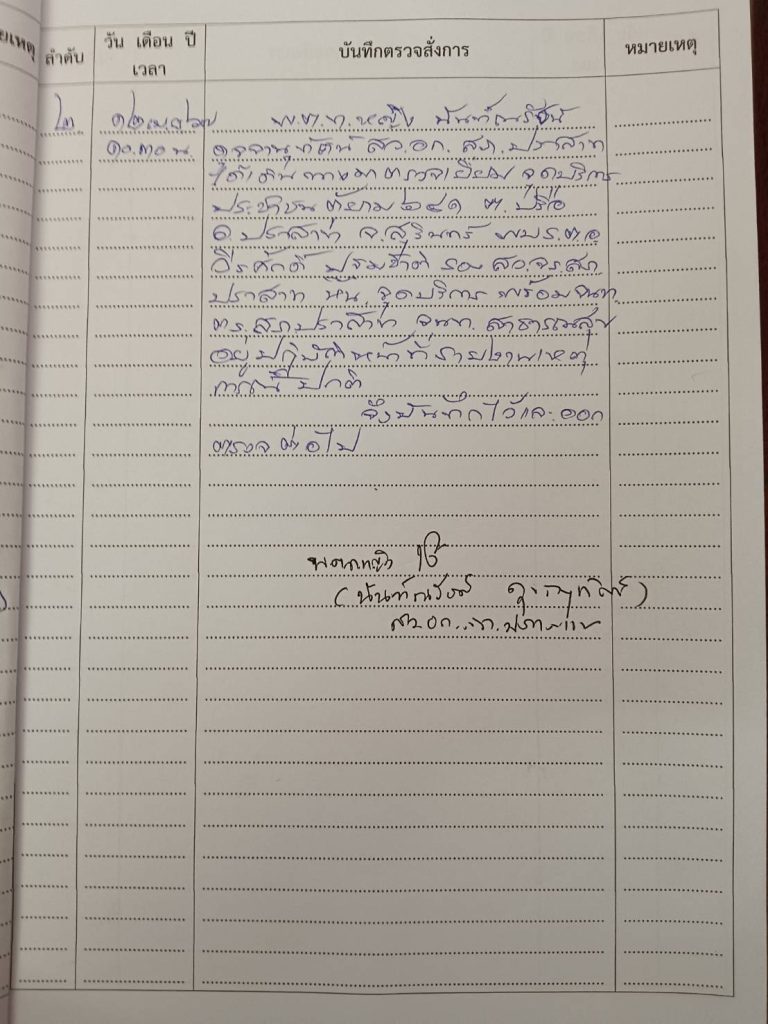 ยเหตุ
ลำดับ
วัน เดือน ปี
เวลา
บันทึกตรวจสั่งการ
หมายเหตุ
๒ ๑๒ เม.ย. พ.ต.ท.หญิง นันท์ณรัชน์
๑๐.๓๐ น. สว.อก. สภ.ปราสาท
ได้เดินทางมาตรวจเยี่ยม จุดบริการ
ประชาชน ตู้ยาม ๒๔๑ ต.ปรือ
อ.ปราสาท จ.สุรินทร์ พบ ร.ต.อ.
ธีรศักดิ์ ปฐมชาติ รอง สว.จร.สภ.
ปราสาท หน.จุดบริการ พร้อม จนท.
ตร.สภ.ปราสาท, จนท.สาธารณสุข
อยู่ปฏิบัติหน้าที่ รายงานเหตุ
การณ์ ปกติ
จึงบันทึกไว้และออก
ตรวจต่อไป
พ.ต.ท.หญิง
(นันท์ณรัชน์
สว.อก.สภ.ปราสาท